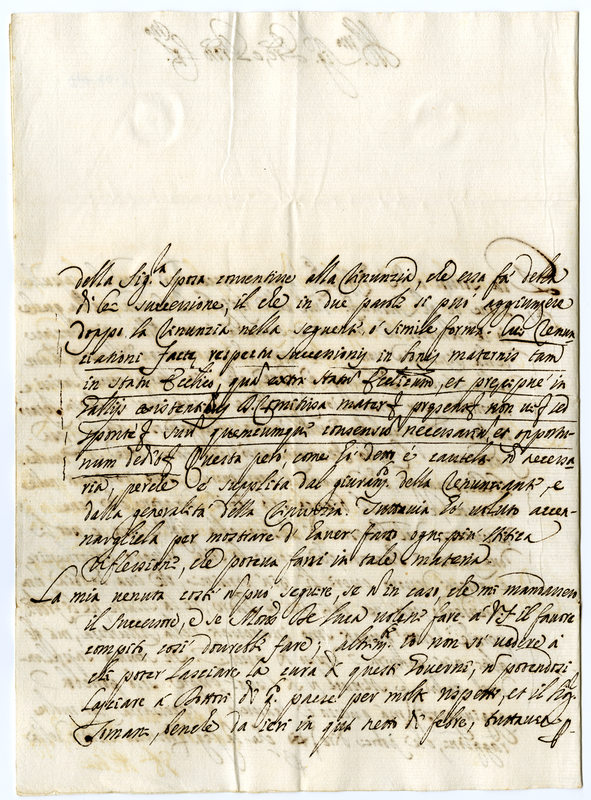 della Sig.ra Sposa consentire alla Rinunzia, che essa fà della
di lei successione, il che in due parole si può aggiungere
doppo la Rinunzia nella seguente, ò simile forma. Cui Renun
ciationi factæ respectu successionis in bonis maternis tam
in Statu Eccl.co, quam extra Statum Eccl.cum, et præcipuè in
existentibus D. Comitissa mater præsens non
sponte suum quemcumque consensum necessarium, et opportu-
num dedit. Questa però, come hò detto è cautela nò necessa
ria, perche è supplita dal giuram.to della Renunciante, e
dalla generalità della Rinunzia. Tuttavia hò voluto accen-
nargliela per mostrare di haver fatto ogni più
riflessione, che poteva farsi in tale materia.
La mia venuta costì nò può seguire, se nò in caso, che mi mandassero
il Successore, e se Mons. De Luca volesse fare à il favore
compito, così dovrebbe fare; altrim.te io non sò vedere à
chi poter lasciare la cura di questi Governi, nò potendosi
lasciare à Dottori di q.o paese per molti rispetti, et il
benche da ieri in quà netto di febre, tuttavia